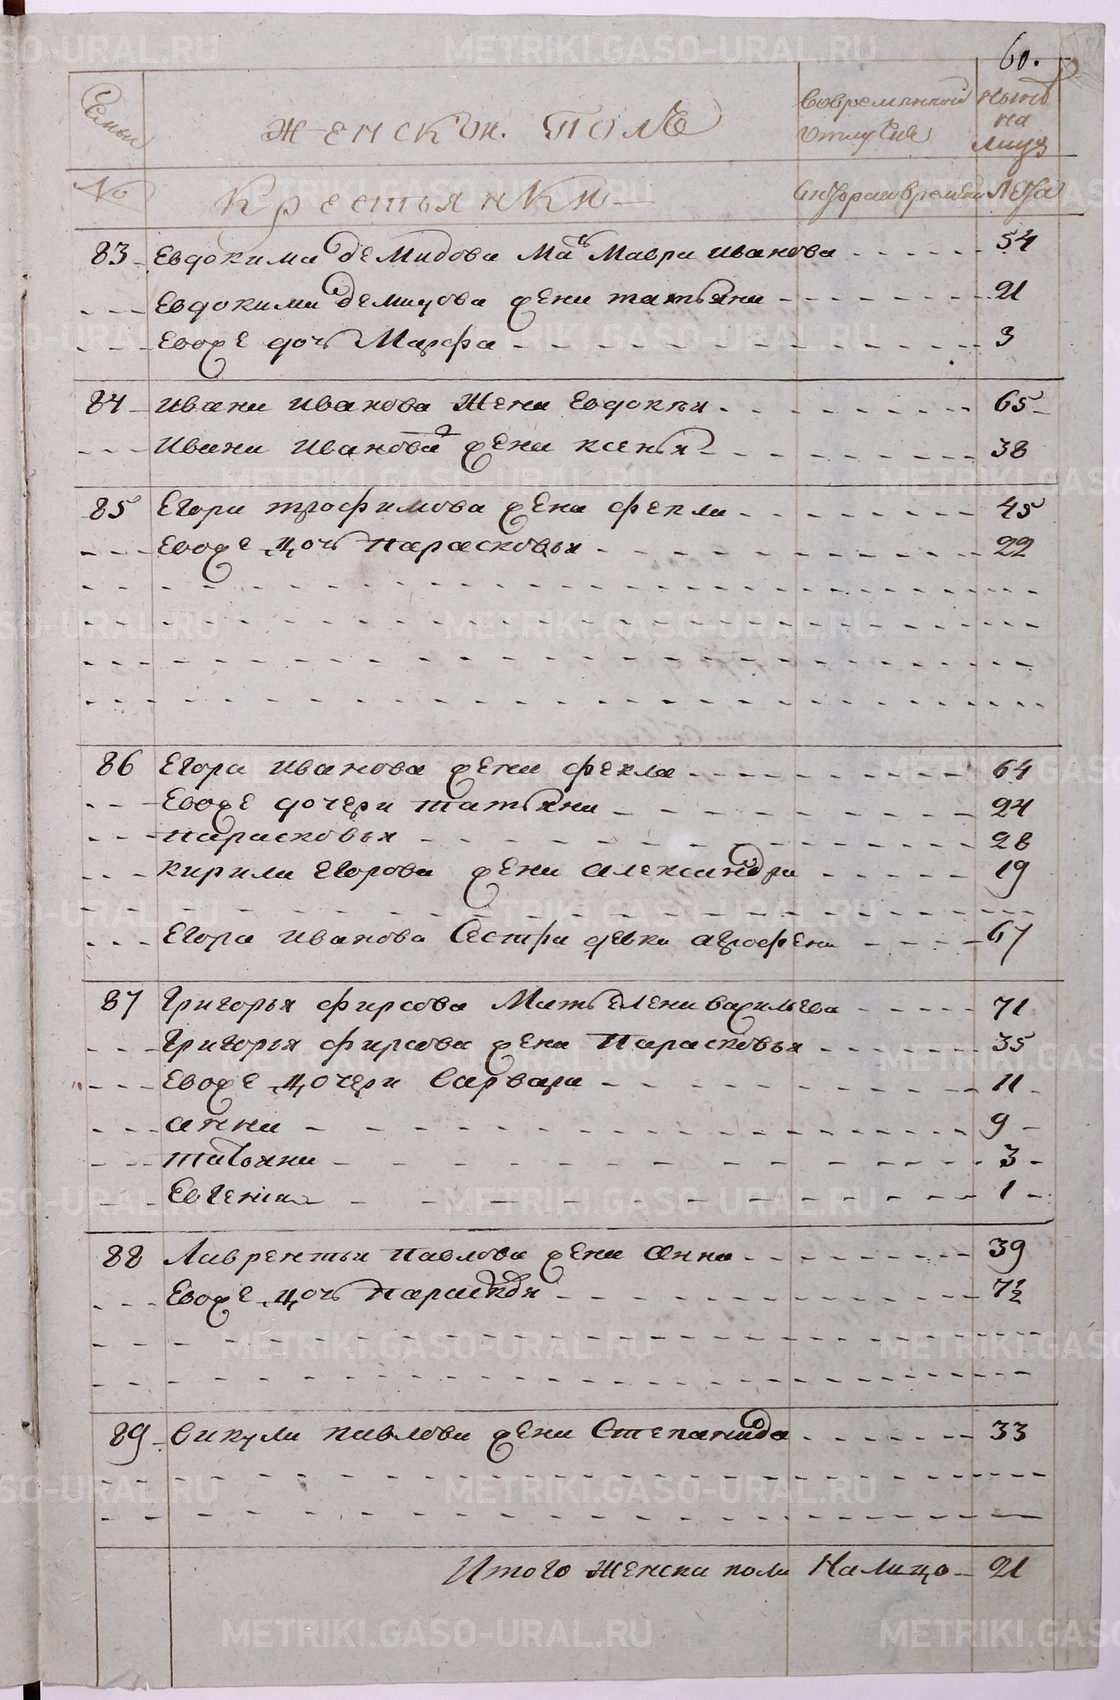 60.
Семьи Женской Полъ Во временной отлучке Ныне на лицо
№ Крестьянки С котораго времени Лета
83 Евдокима Демидова Мать Мавра Иванова 54
Евдокима Демидова жена Татьяна 21
Ево же дочь Марфа 3
84 Ивана Иванова Жена Евдокья 65
Ивана Иванова 2 жена Ксенья 38
85 Егора Трофимова жена Фекла 45
Ево же дочь Парасковья 22
86 Егора Иванова жена Фекла 64
Ево же дочери Татьяна 24
Парасковья 28
Кирила Егорова жена Александра 19
Егора Иванова Сестра девка Агрофена 67
87 Григорья Фирсова Мать Елена Васильева 71
Григорья Фирсова жена Парасковья 35
Ево же дочери Варвара 11
Анна 9
Татьяна 3
Евгения 1
88 Лаврентья Павлова жена Анна 39
Ево же дочь Парасковья 7½
89 Викула Павлова жена Степанида 33
Итого женска пола Налицо 21
METRIKI.GASO-URAL.RU